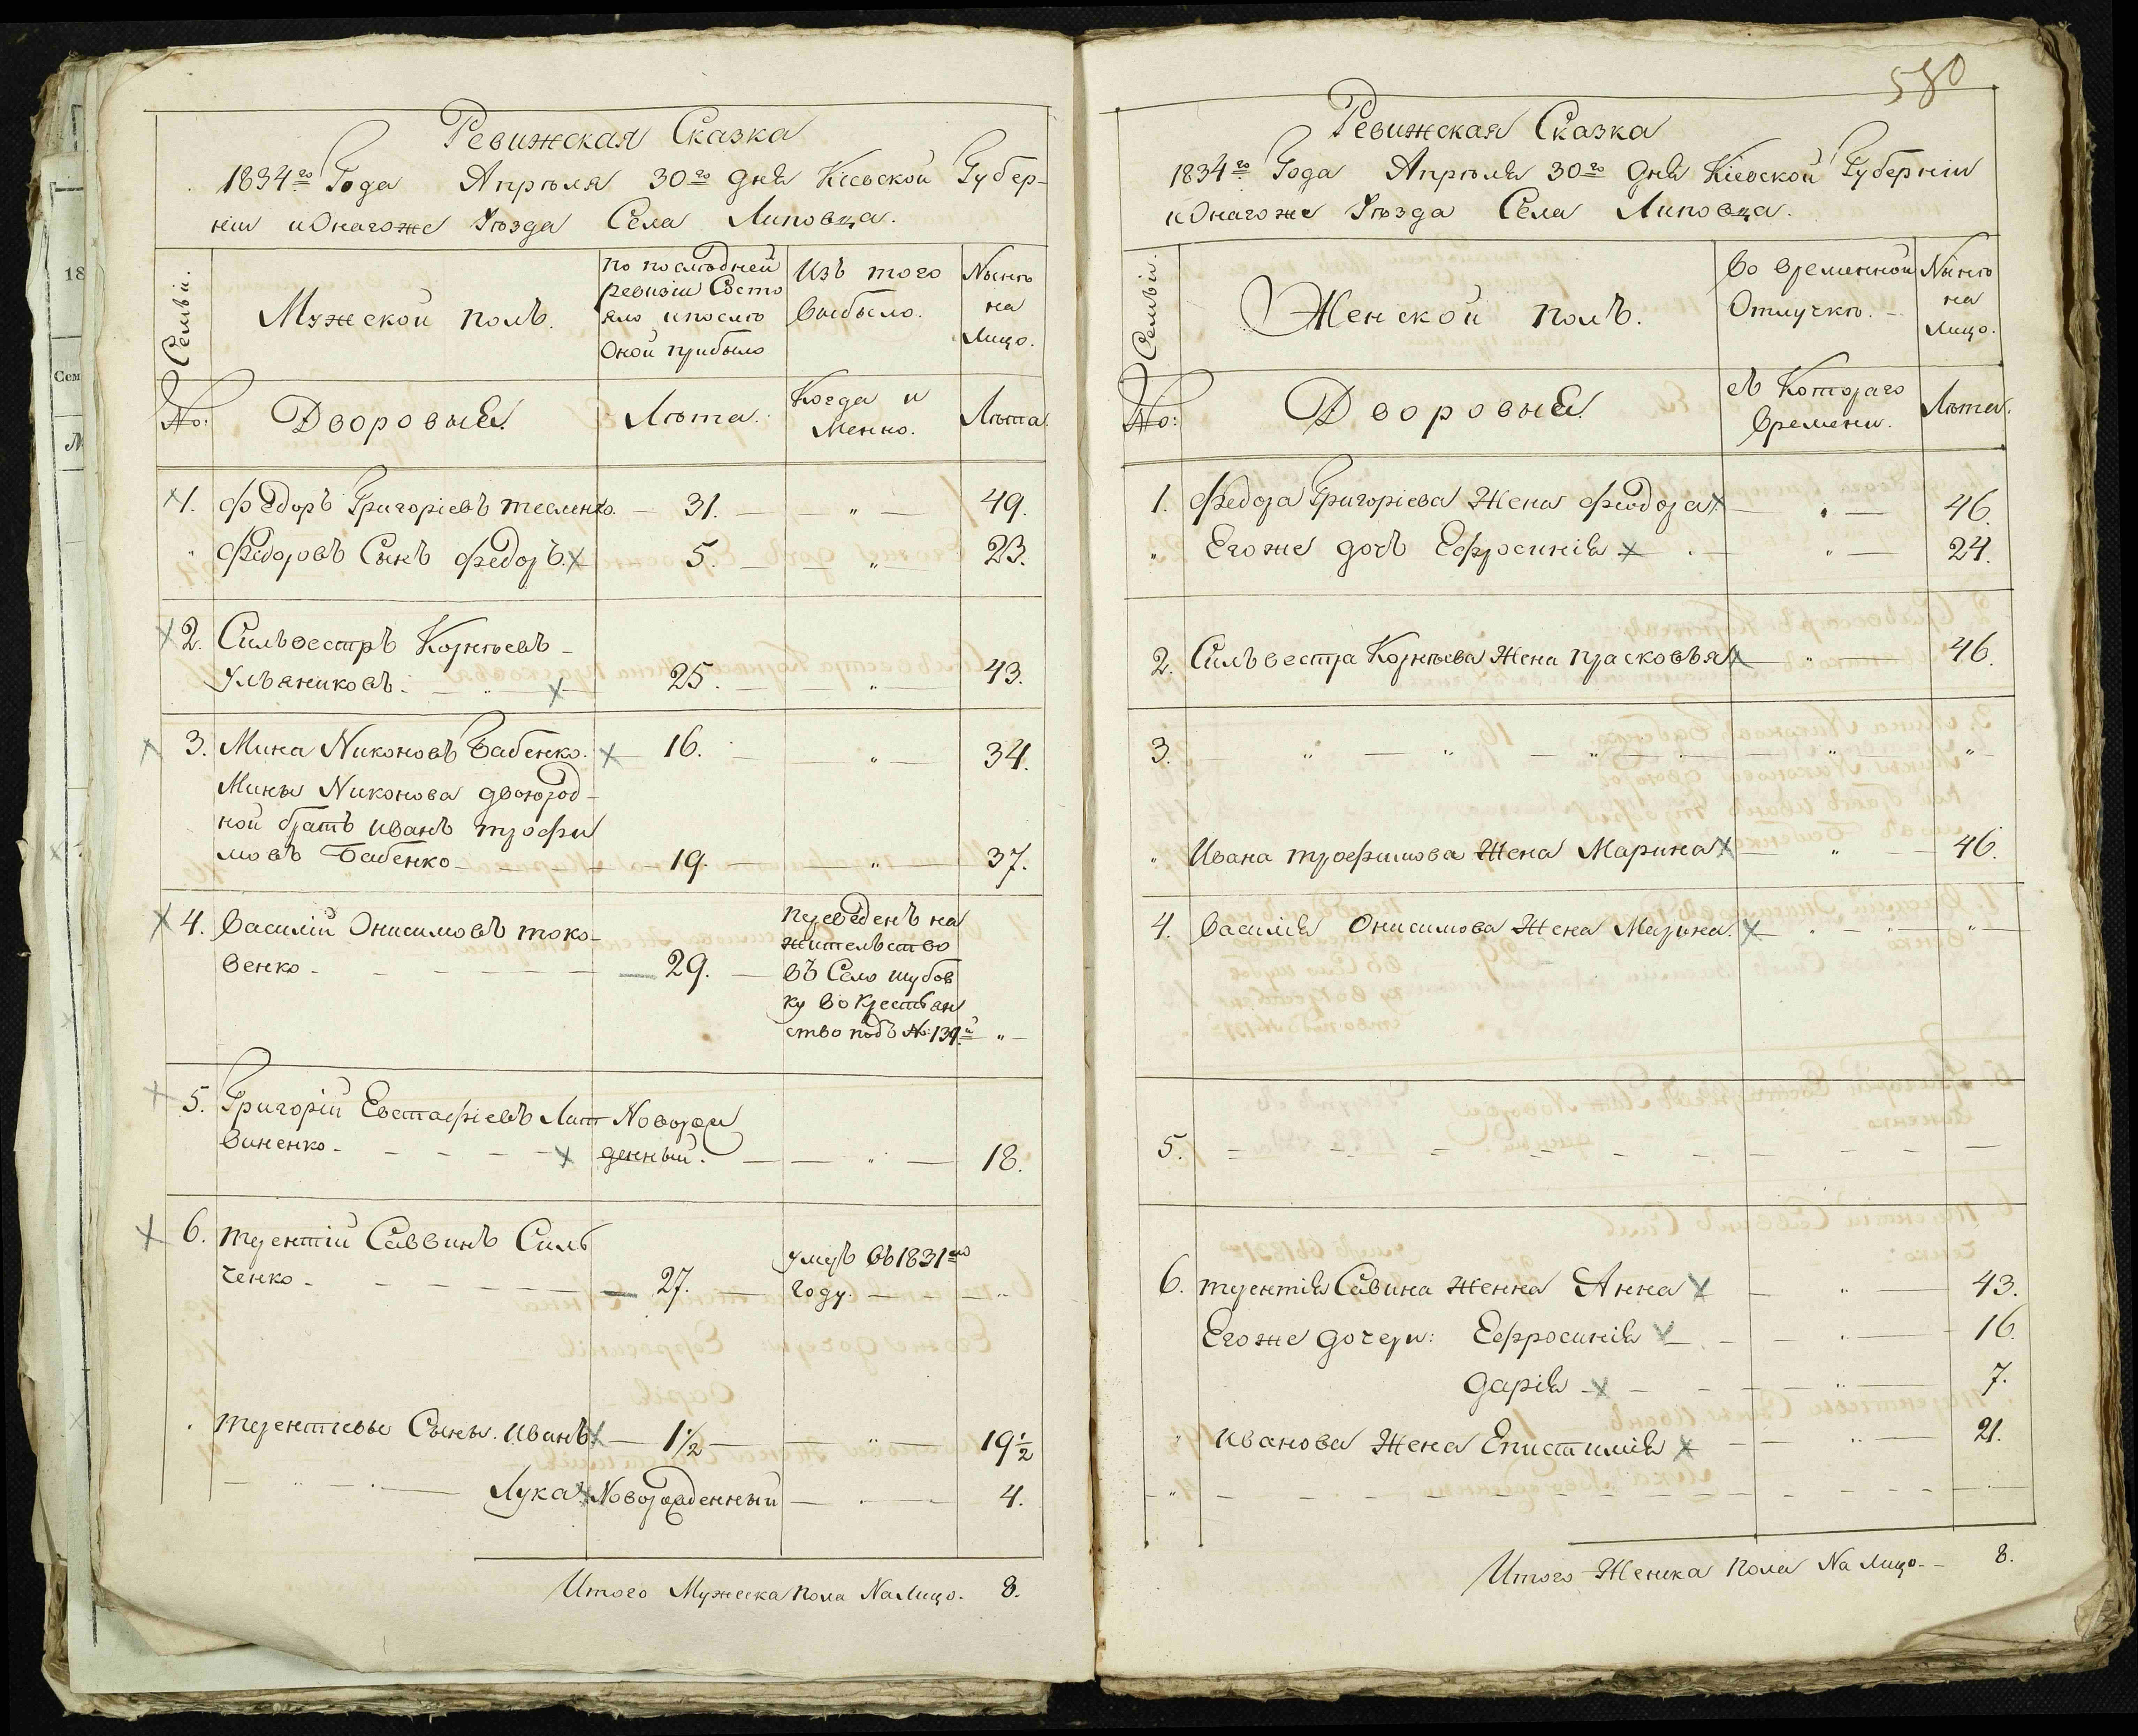 Ревижская Сказка
1834го Года Апрѣля 30го дня Кіевской Губер-
ніи и Онагоже Уѣзда Села Липовца.
Семьи.
Мужской полъ.
по последней
ревизіи Состо
яло и после
Оной прибыло
Изъ того
выбыло.
Нынѣ
на
лицо.
№:
Дворовые.
Лѣта.
Когда и
менно.
Лѣта.
1. Федоръ Григоріевъ тесленко. — 31. — „ — 49.
„ Федоровъ Сынъ Федоръ. 5. — „ — 23.
2. Сильвестръ Корнѣевъ
Ульяниковъ. — „ — 25. — „ — 43.
3. Мина Никоновъ Бабенко. 16. — „ — 34.
Мины Никонова двоюрод-
ной братъ иванъ трофи
мовъ Бабенко — 19. — „ — 37.
4. Василій Онисимовъ токо-
венко — 29. —
переведенъ на
жительство
въ Село шубов
ку во крестьян
ство подъ №: 139й „
5. Григорій Евстафіевъ Лит
виненко —
Новорож
денный. — „ — 18.
6. терентій Саввинъ Силь
ченко — 27. —
умеръ въ 1831мъ
году. — „
терентіевы Сыны. иванъ — 1½ — „ — 19½
Лука. Новорожденный — „ — 4.
Итого Мужеска пола На Лицо. 8.
580
Ревижская Сказка
1834го Года Апрѣля 30го дня Кіевской Губерніи
и Онагоже Уѣзда Села Липовца.
Семьи.
Женской полъ.
Во временной
Отлучкѣ.
Нынѣ
на
лицо.
№:
Дворовые.
съ Котораго
времени.
Лѣта.
1. Федора Григоріева Жена феодора — „ — 46.
„ Егоже дочь Ефросинія — „ — 24.
2. Сильвестра Корнѣева Жена прасковья — „ — 46.
3. — „ — „ — „ — „ — „
„ Ивана трофимова Жена Марина — „ — 46.
4. Василія Онисимова Жена Марина. — „ — „
5. — — — — —
6. терентія Савина женна Анна — „ — 43.
Егоже дочери: Ефросинія — „ — 16.
дарія — „ — 7.
„ иванова Жена Епистимія — „ — 21.
„ — — — — —
Итого Женска пола На Лицо — 8.